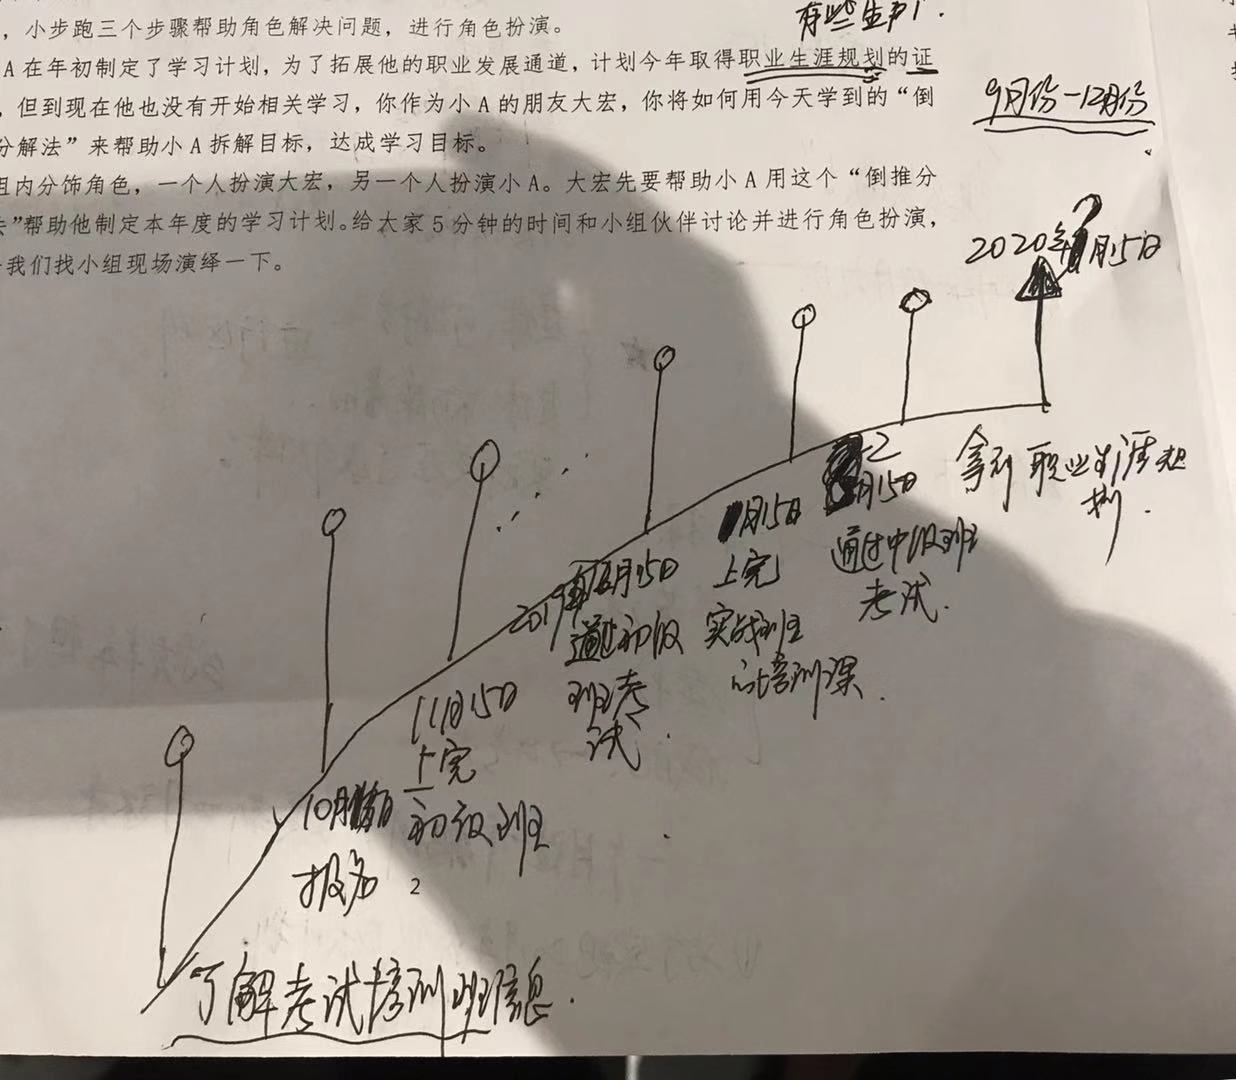 ，小步跑三个步骤帮助角色解决问题，进行角色扮演。
A在年初制定了学习计划，为了拓展他的职业发展通道，计划今年取得职业生涯规划的证
，但到现在他也没有开始相关学习，你作为小A的朋友大宏，你将如何用今天学到的“倒
分解法”来帮助小A拆解目标，达成学习目标。
组内分饰角色，一个人扮演大宏，另一个人扮演小A。大宏先要帮助小A用这个“倒推分
”帮助他制定本年度的学习计划。给大家5分钟的时间和小组伙伴讨论并进行角色扮演，
我们找小组现场演绎一下。
9月份-12月份
2020年 月15日
拿到职业生涯规
划.
月15日
通过中级班
考试.
月15日
上完
实战班
培训课.
2019年12月15日
通过初级
班考
试.
11月15日
上完
初级班
10月
报名
2
了解考试培训班信息.